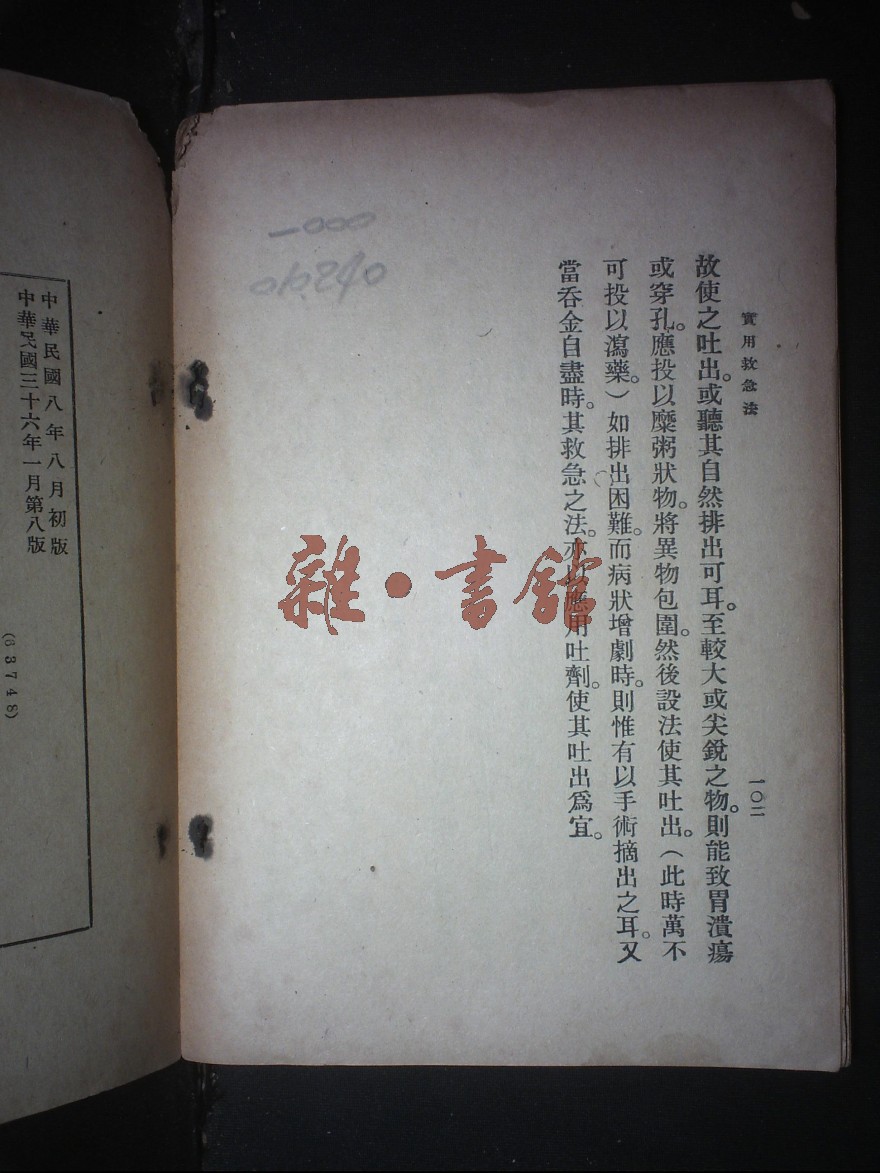 實用救急法
一〇二
故使之吐出。或聽其自然排出可耳。至較大或尖銳之物。則能致胃潰瘍
或穿孔。應投以糜粥狀物。將異物包圍。然後設法使其吐出。（此時萬不
可投以瀉藥。）如排出困難。而病狀增劇時。則惟有以手術摘出之耳。又
當吞金自盡時。其救急之法。亦以應用吐劑。使其吐出爲宜。
一000
中華民國八年八月初版
中華民國三十六年一月第八版
(63748)
雜·書館